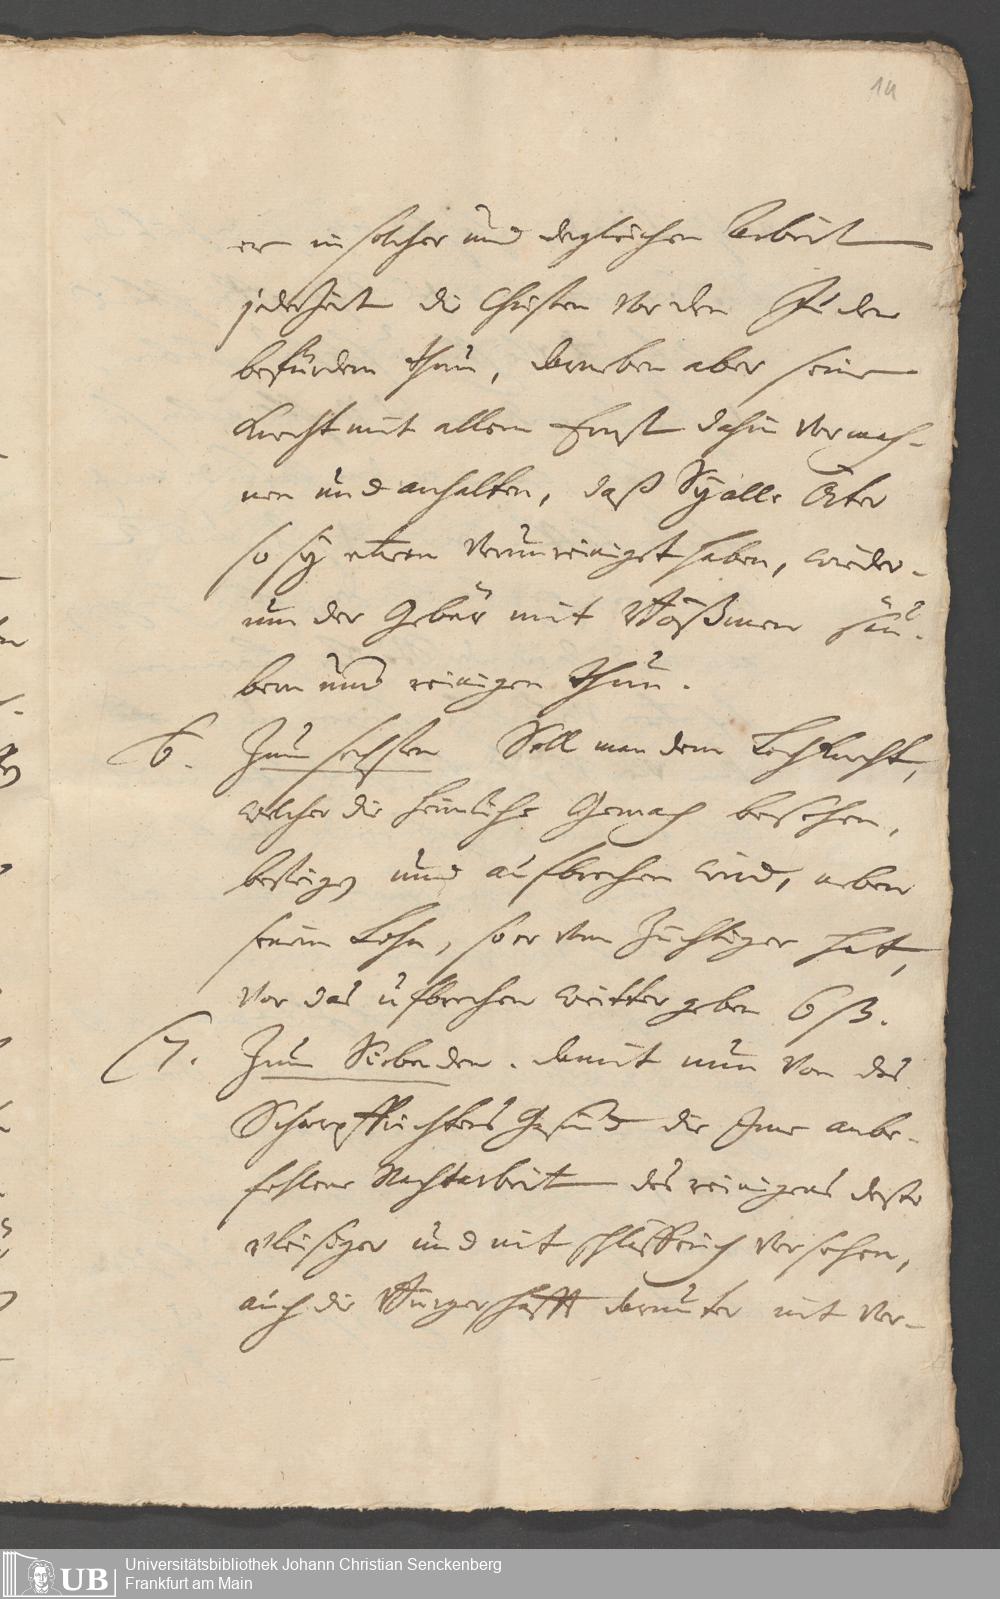 14
er in solcher und dergleichen Arbeit
jederZeit die Christen vor den Juden
befürdern thun, darneben aber seine
Knecht mit allem Ernst dahin vermah-
nen und anhalten, daß Sy alle Örter
so sy etwan verunreiniget haben, wieder-
um der Gebür mit säu-
bern und reinigen thun.
6. Zum sechsten Soll man dem LochKnecht,
welcher die heimliche Gemach besehen,
besteigen und aufbrechen wird, neben
seinem Lohn, so er vom Züchtiger hat,
vor das ufbrechen weitter geben 6 ß.
7. Zum Siebenden. damit nun von des
Scharpffrichters Gesind die Jme anbe-
fehlene Nachtarbeit des reinigens desto
vleisiger und nit schläfferich versehen,
auch die Burgerschafft darunter nit ver-
UB
Universitätsbibliothek Johann Christian Senckenberg
Frankfurt am Main